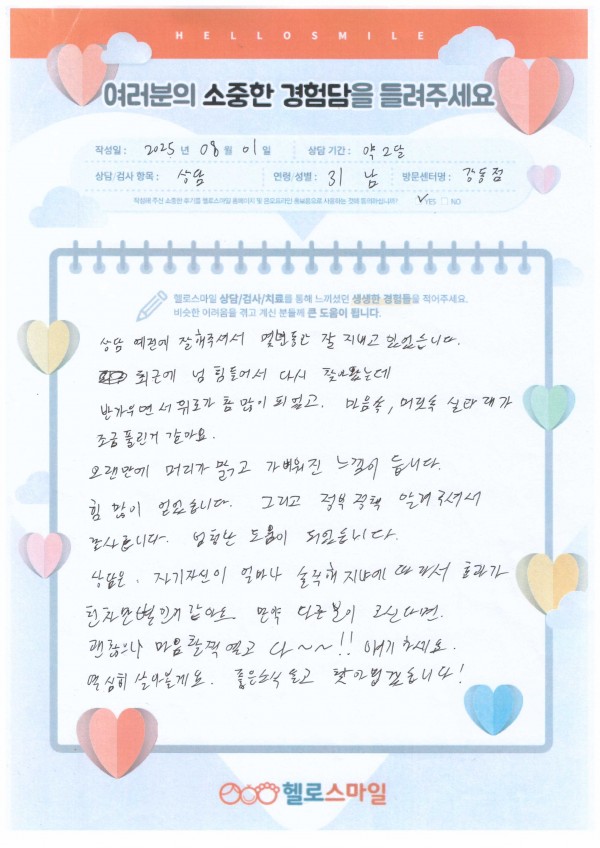 HELLOSMILE
여러분의 소중한 경험담을 들려주세요
작성일 : 2025 년 08 월 01 일 상담 기간 : 약 2달
상담/검사 항목 : 상담 연령/성별 : 31 남 방문센터명 : 강동점
작성해 주신 소중한 후기를 헬로스마일 홈페이지 및 온오프라인 홍보용으로 사용하는 것에 동의하십니까? ✓YES □ NO
헬로스마일 상담/검사/치료를 통해 느끼셨던 생생한 경험들을 적어주세요.
비슷한 어려움을 겪고 계신 분들께 큰 도움이 됩니다.
상담 예전에 잘해주셔서 몇년동안 잘 지내고 있었습니다.
최근에 넘 힘들어서 다시 찾아왔는데
반가우면서 위로가 참 많이 되었고. 마음속, 머릿속 실타래가
조금 풀린거 같아요.
오랜만에 머리가 맑고 가벼워진 느낌이 듭니다.
힘 많이 얻었습니다. 그리고 정부정책 알려주셔서
감사합니다. 엄청난 도움이 되었습니다.
상담은, 자기자신이 얼마나 솔직해지냐에 따라서 효과가
천차만별인거 같아요 만약 다른분이 오신다면.
괜찮으니 마음 활짝 열고 다~~!! 얘기하세요.
열심히 살아볼게요. 좋은소식 들고 찾아뵙겠습니다!
헬로스마일